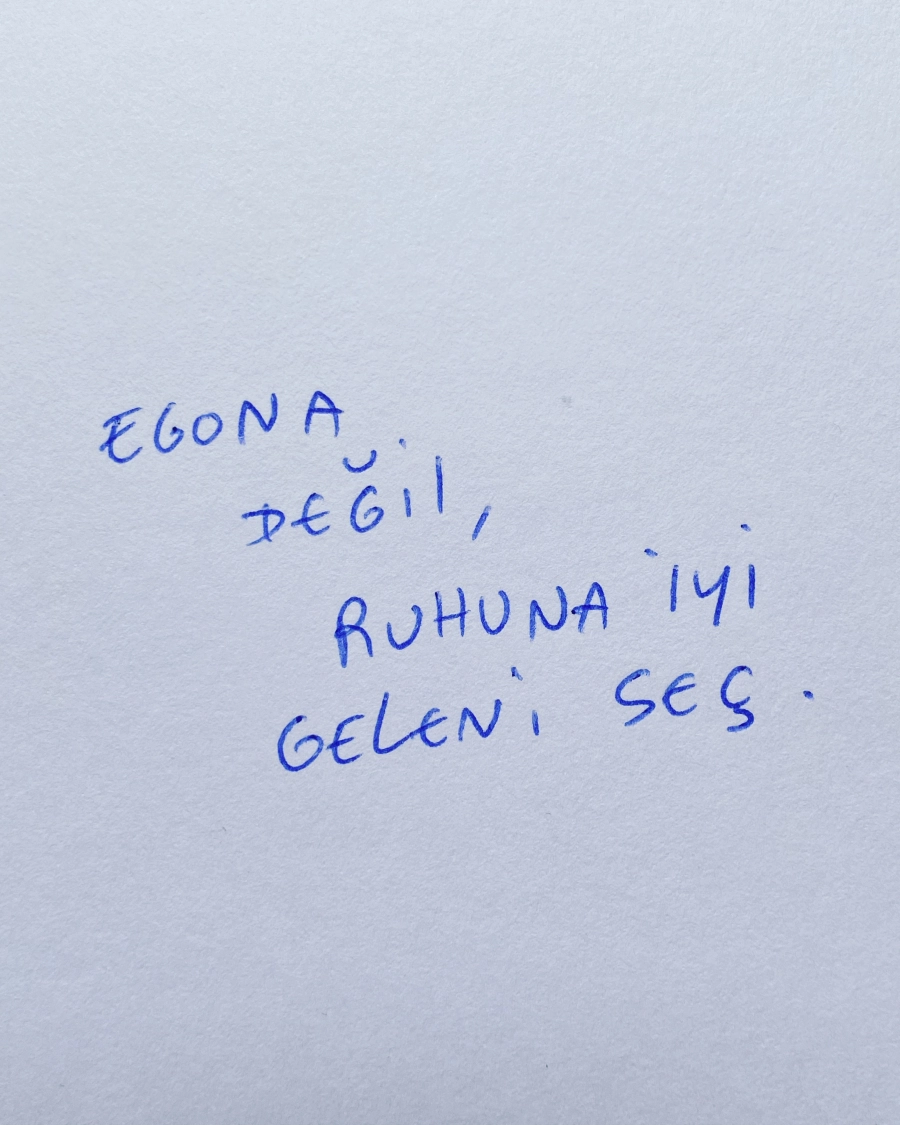 EGONA
DEĞİl,
RUHUNA İYİ
GELENİ SEÇ.